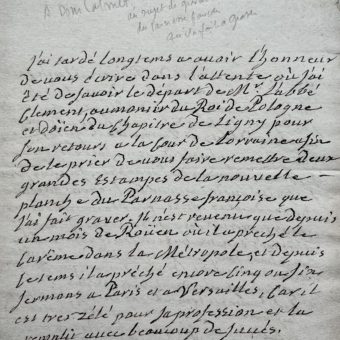 A Dom Calmet
au sujet de
du Parnasse
J'ai tardé longtems a avoir l'honneur
de vous écrire dans l'attente où j'ai
été de savoir le départ de Mr. l'abbé
Clement, aumonier du Roi de Pologne
et doien du Chapitre de Ligny pour
son retour a la Cour de Lorraine afin
de le prier de vous faire remettre deux
grandes Estampes de la nouvelle
planche du Parnasse françoise que
j'ai fait graver. Il n'est revenu que depuis
un mois de Roüen où il a prêché le
Carême dans la Métropole, et depuis
ce tems il a prêché encore cinq ou six
sermons a Paris et a Versailles, Car il
est tres zélé pour sa profession et la
remplit avec beaucoup de succés.